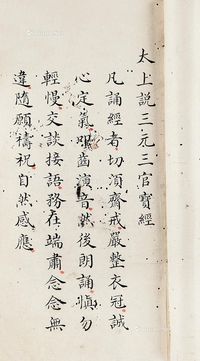 太上說三元三官寶經
凡誦經者切須齋戒嚴整衣冠誠
心定氣叩齒演音然後朗誦慎勿
輕慢交談接語務在端肅念念無
違隨願禱祝自然感應